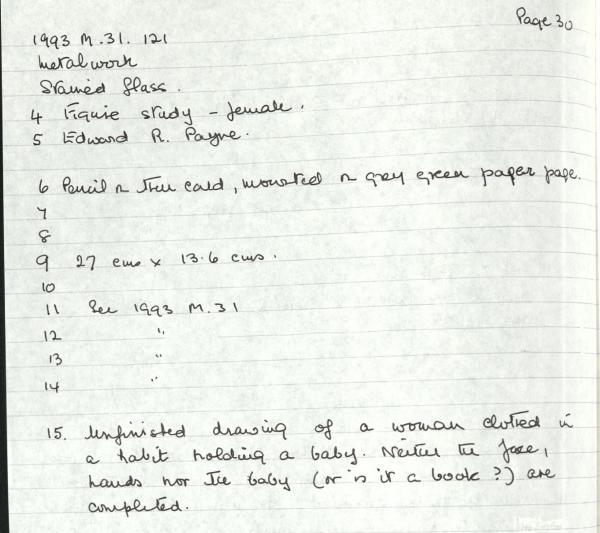 Page 30
1993 M.31. 121
Metalwork
Stained Glass.
4 Figure study - female.
5 Edward R. Payne.
6 Pencil on card, mounted on grey green paper page.
7
8
9 27 cms x 13.6 cms.
10
11 See 1993 M.31
12 "
13 "
14 "
15. Unfinished drawing of a woman clothed in
a habit holding a baby. Neither the face,
hands nor the baby (or is it a book?) are
completed.